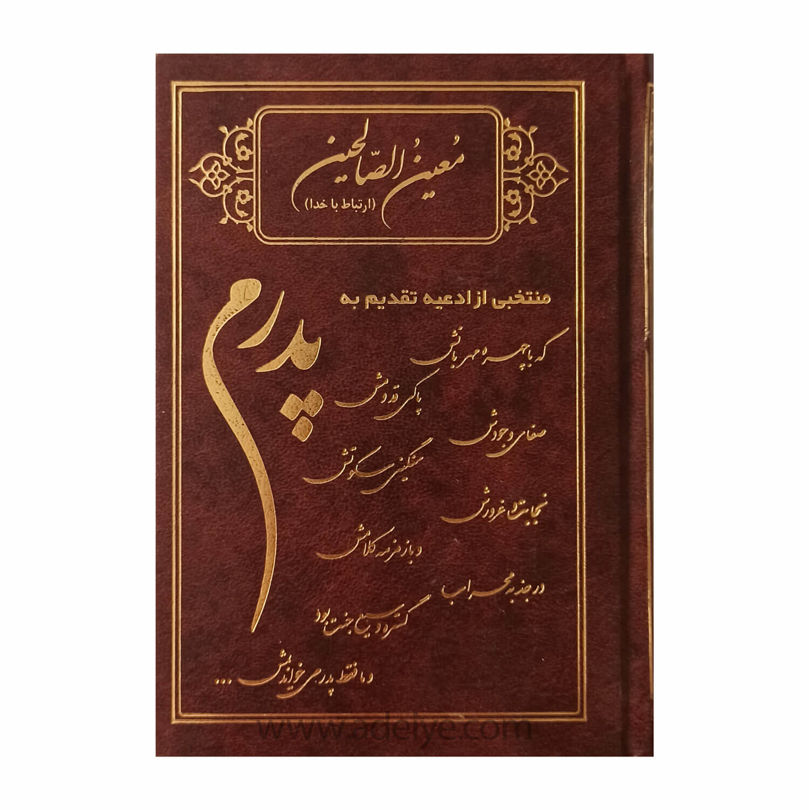 مُعینُ الصّالحین
(ارتباط با خدا)
منتخبی از ادعیه تقدیم به
پدرم
که با چهره مهربانش
پاکی قدومش
صفای وجودش
سنگینی سکوتش
نجابت و غرورش
و با زمزمه کلامش
در جذبه محراب
گستره وسیع جنت بود
و ما فقط پدر می خواندیمش ...
www.adelye.com